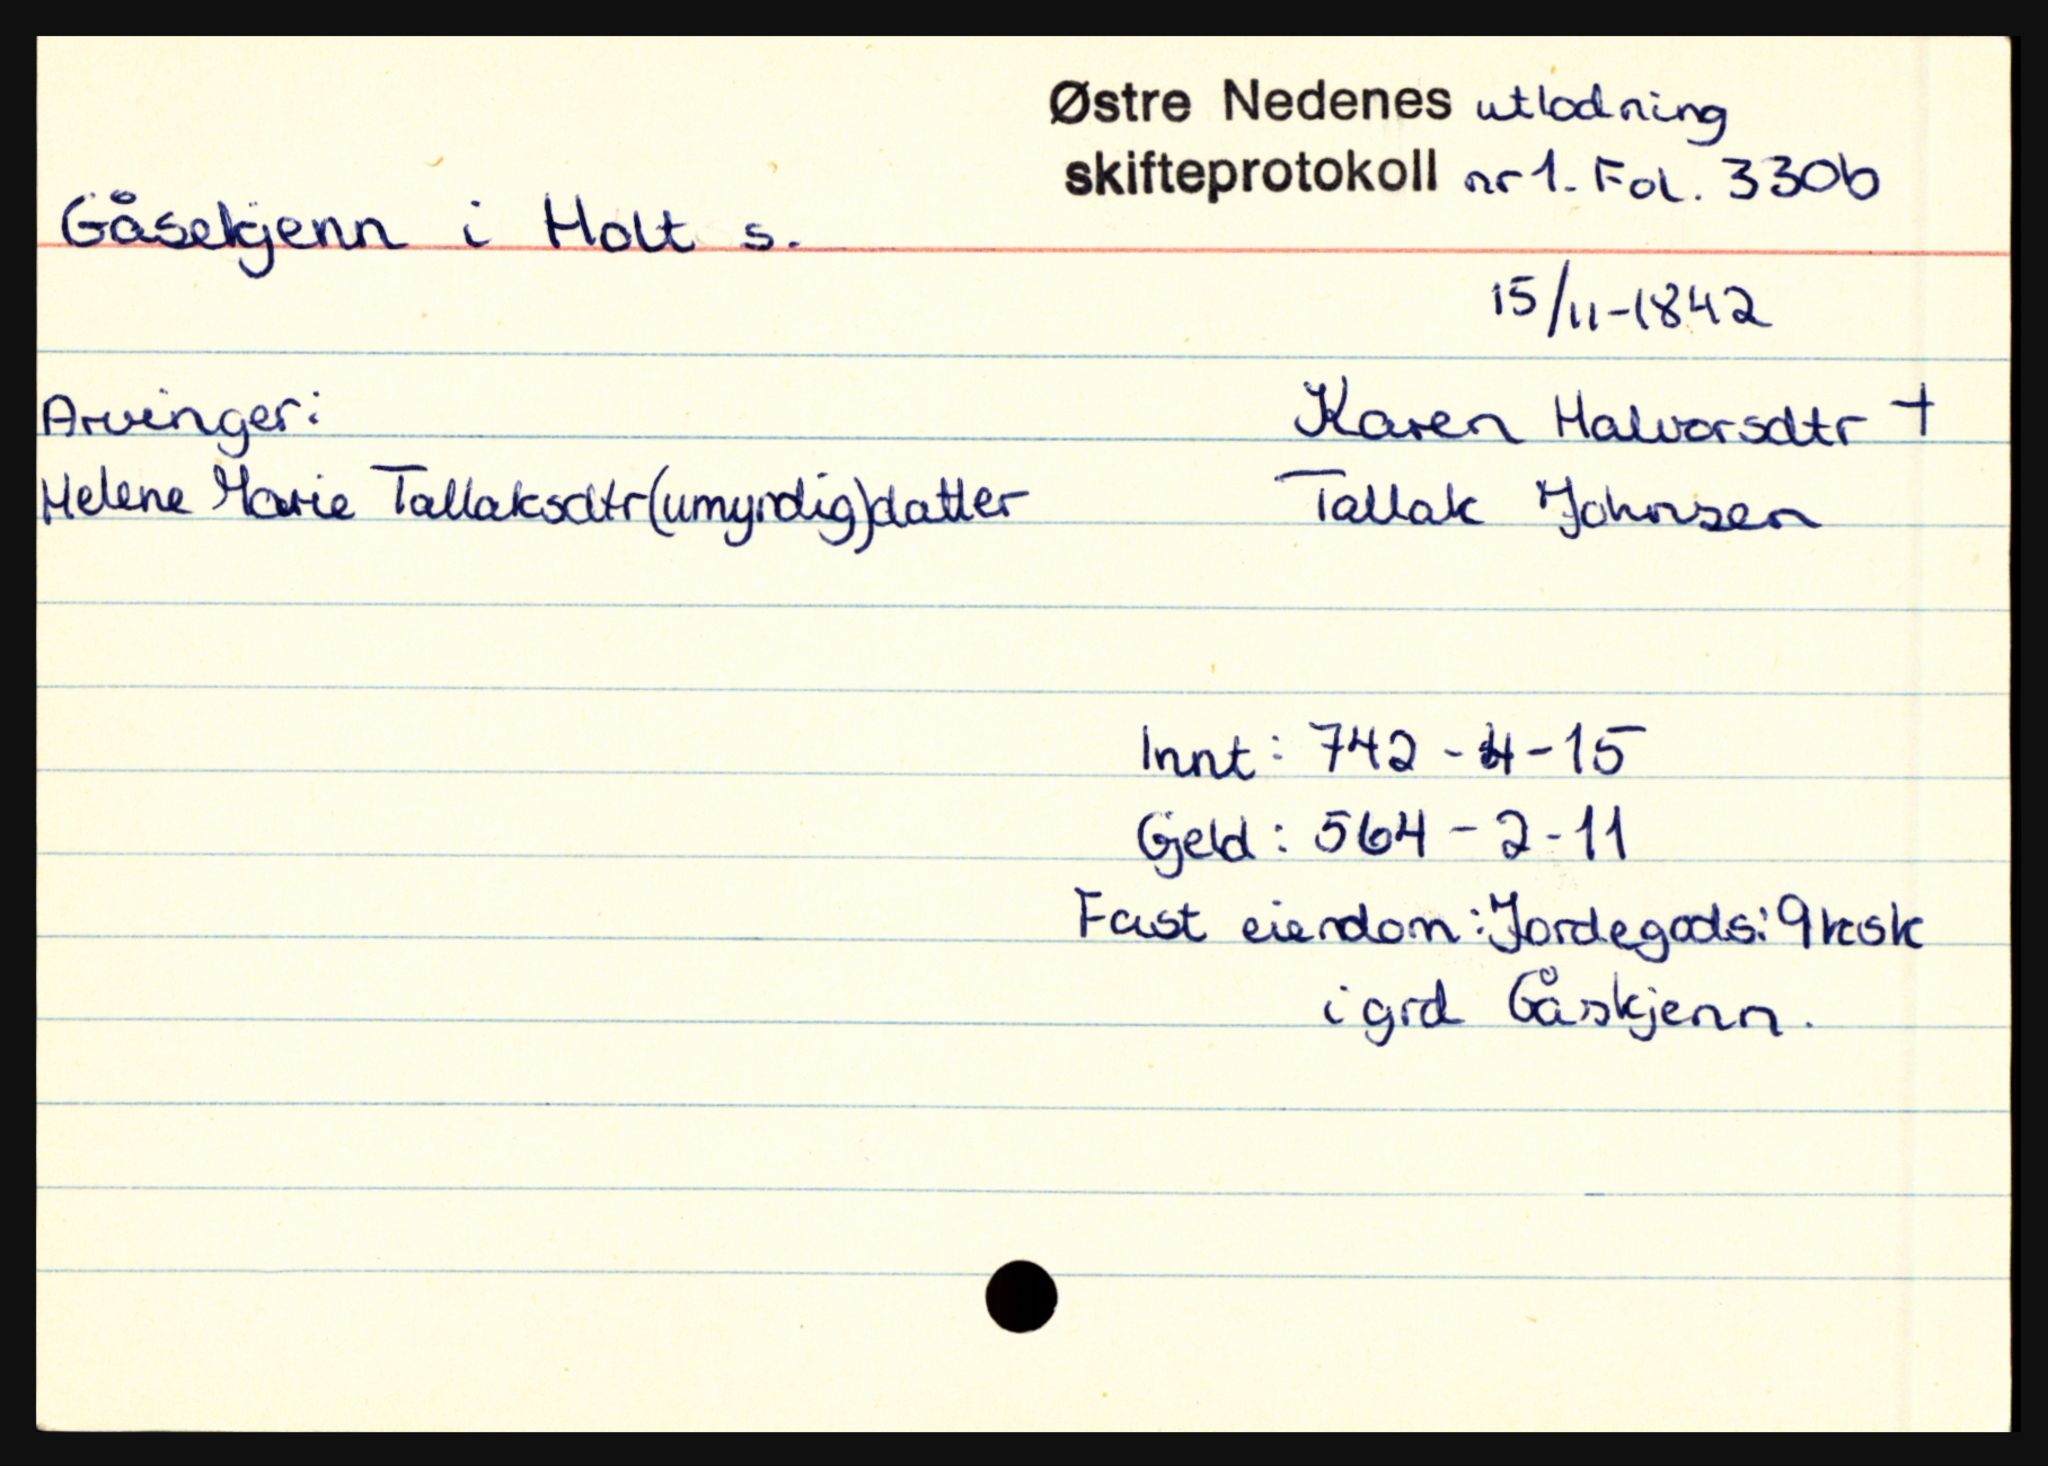 Østre Nedenes utlodning
skifteprotokoll nr 1. Fol. 330b
Gåsekjenn i Holt s.
15/11-1842
Arvinger:
Karen Halvorsdtr †
Helene Marie Tallaksdtr (umyndig) datter
Tallak Johnsen
Innt: 742 - 4 - 15
Gjeld: 564 - 2 - 11
Fast eiendom: Jordegods: 9 ksk
i grd Gåskjenn.